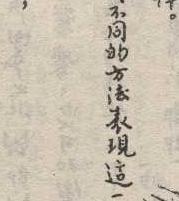 不同的方法表現這一